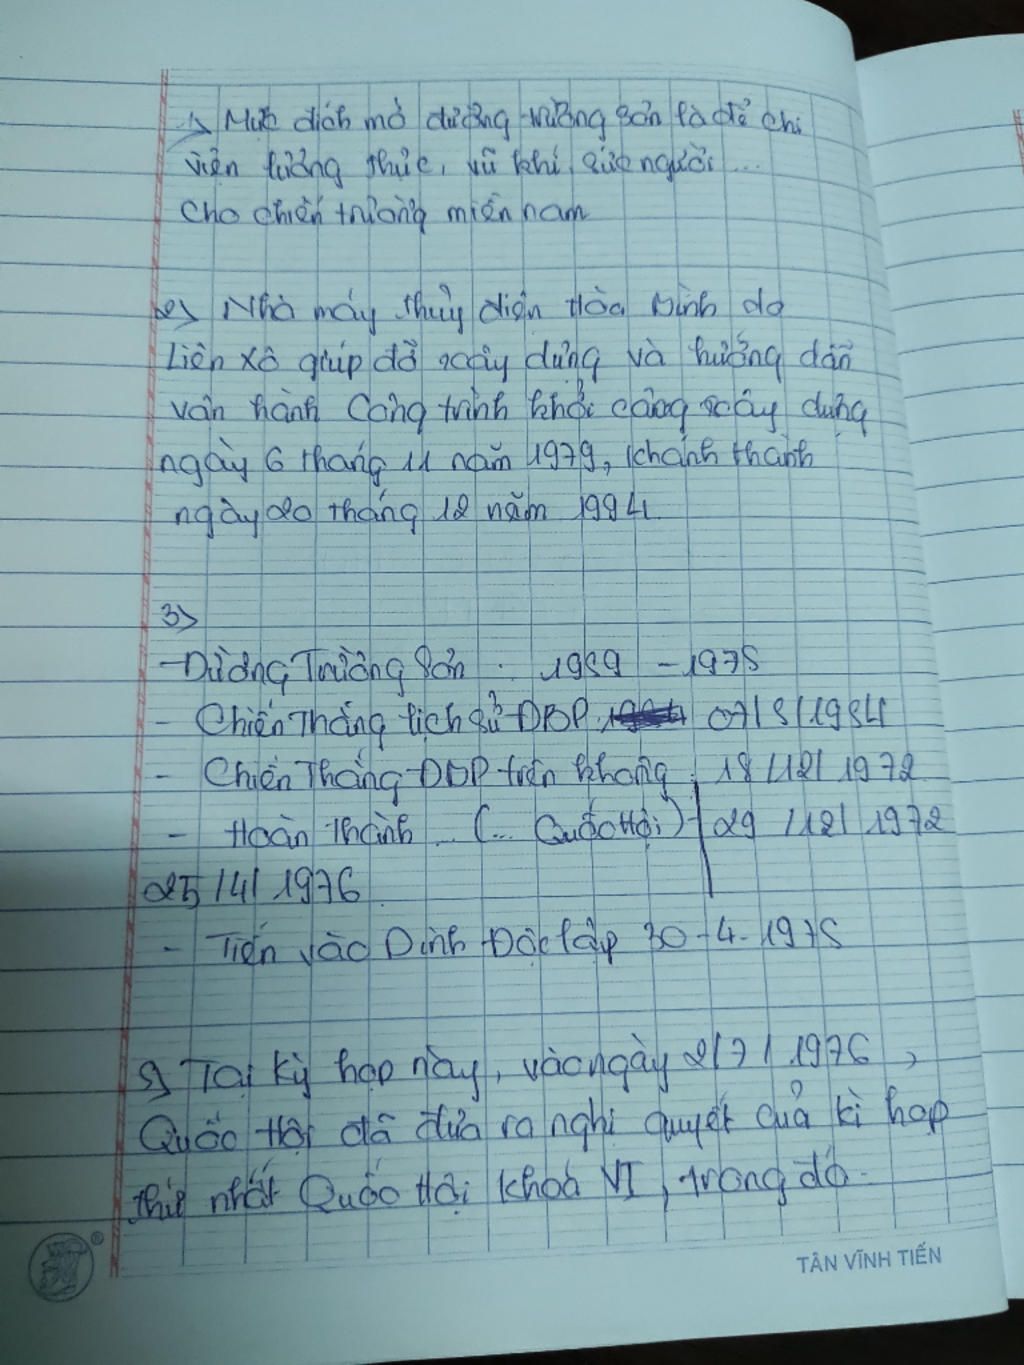 1> Mục đích mở đường trường Sơn là để chi
viện lương thực, vũ khí, sức người ...
cho chiến trường miền nam
2> Nhà máy thủy điện Hòa Bình do
Liên Xô giúp đỡ xây dựng và hướng dẫn
vận hành Công trình khởi công xây dựng
ngày 6 tháng 11 năm 1979, khánh thành
ngày 20 tháng 12 năm 1994
3>
- Đường Trường Sơn : 1959 - 1975
- Chiến Thắng lịch sử ĐBP 07/5/1954
- Chiến Thắng ĐBP trên không : 18/12/1972
- Hoàn thành ... (... Quốc Hội) 29/12/1972
25/4/1976
- Tiến vào Dinh Độc lập 30-4-1975
5> Tại Kỳ họp này, vào ngày 2/7/1976,
Quốc Hội đã đưa ra nghị quyết của kì họp
thứ nhất Quốc Hội khoá VI, trong đó
TÂN VĨNH TIẾN